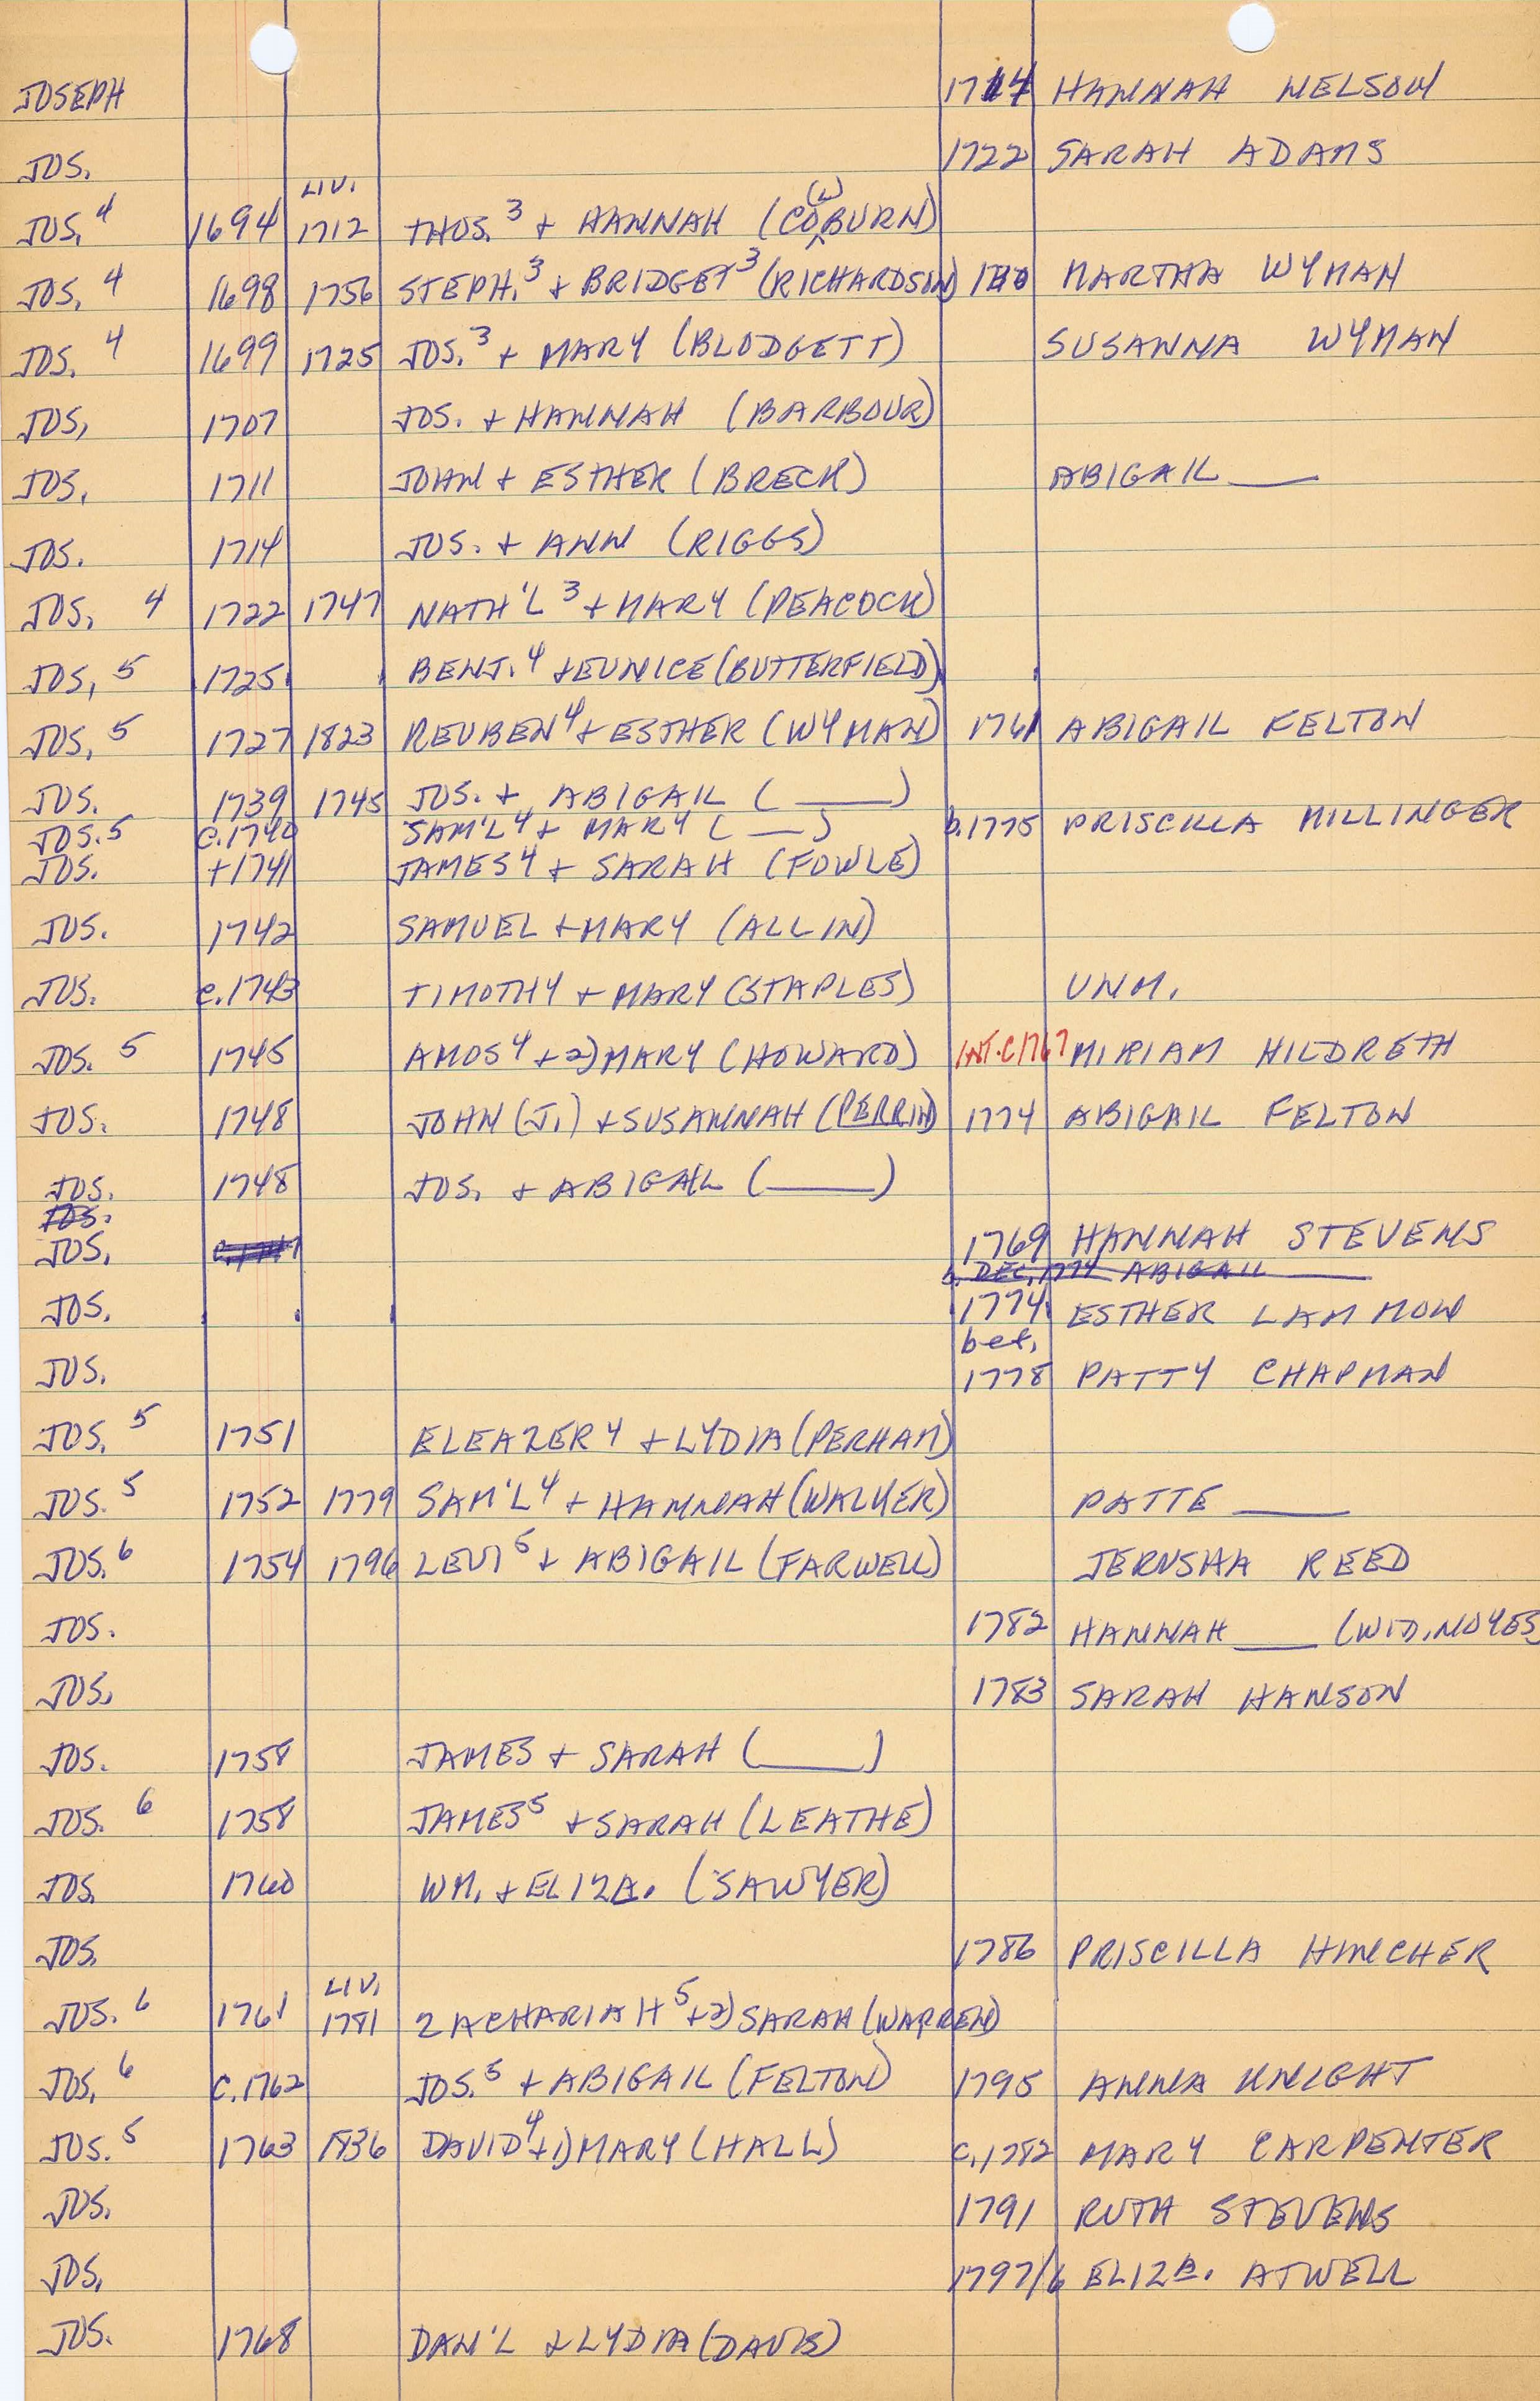 JOSEPH 1714 HANNAH NELSON
JOS. 1722 SARAH ADAMS
LIV. (L)
JOS. 4 1694 1712 THOS. 3 + HANNAH (COBURN)
JOS. 4 1698 1756 STEPH. 3 + BRIDGET 3 (RICHARDSON) MARTHA WYMAN
JOS. 4 1699 1725 JOS. 3 + MARY (BLODGETT) SUSANNA WYMAN
JOS, 1707 JOS. + HANNAH (BARBOUR)
JOS, 1711 JOHN + ESTHER (BRECK) ABIGAIL ___
JOS. 1714 JOS. + ANN (RIGGS)
JOS, 4 1722 1747 NATH'L 3 + MARY (PEACOCK)
JOS, 5 1725 BENJ. 4 + EUNICE (BUTTERFIELD)
JOS, 5 1727 1823 REUBEN 4 + ESTHER (WYMAN) 1761 ABIGAIL FELTON
JOS. 1739 1745 JOS. + ABIGAIL ( ___ )
JOS. 5 C.1740 SAM'L 4 + MARY ( ___ ) b.1775 PRISCILLA MILLINGER
JOS. +1741 JAMES 4 + SARAH (FOWLE)
JOS. 1742 SAMUEL + MARY (ALLIN)
JOS. c.1743 TIMOTHY + MARY (STAPLES) UNM.
JOS. 5 1745 AMOS 4 + 2) MARY (HOWARD) INT.C1767 MIRIAM HILDRETH
JOS. 1748 JOHN (J.) + SUSANNAH (PERRIN) 1774 ABIGAIL FELTON
JOS. 1748 JOS. + ABIGAIL ( ___ )
JOS.
JOS, 1769 HANNAH STEVENS
b. DEC, 1774 ABIGAIL ___
JOS. 1774 ESTHER LAMMON
bef.
JOS. 1778 PATTY CHAPMAN
JOS. 5 1751 ELEAZER 4 + LYDIA (PERHAM)
JOS. 5 1752 1779 SAM'L 4 + HANNAH (WALKER) PATTE ___
JOS. 6 1754 1796 LEVI 5 + ABIGAIL (FARWELL) JERUSHA REED
JOS. 1782 HANNAH ___ (WID. NOYES
JOS, 1783 SARAH HANSON
JOS. 1758 JAMES + SARAH ( ___ )
JOS. 6 1758 JAMES 5 + SARAH (LEATHE)
JOS. 1760 WM. + ELIZA. (SAWYER)
JOS. 1786 PRISCILLA HINCHER
LIV.
JOS. 6 1761 1781 ZACHARIAH 5 + 2) SARAH (WARREN)
JOS, 6 C.1762 JOS. 5 + ABIGAIL (FELTON) 1795 ANNA KNIGHT
JOS. 5 1763 1836 DAVID 4 + 1) MARY (HALL) C.1782 MARY CARPENTER
JOS. 1791 RUTH STEVENS
JOS, 1797/6 ELIZA. ATWELL
JOS. 1768 DAN'L + LYDIA (DAVIS)